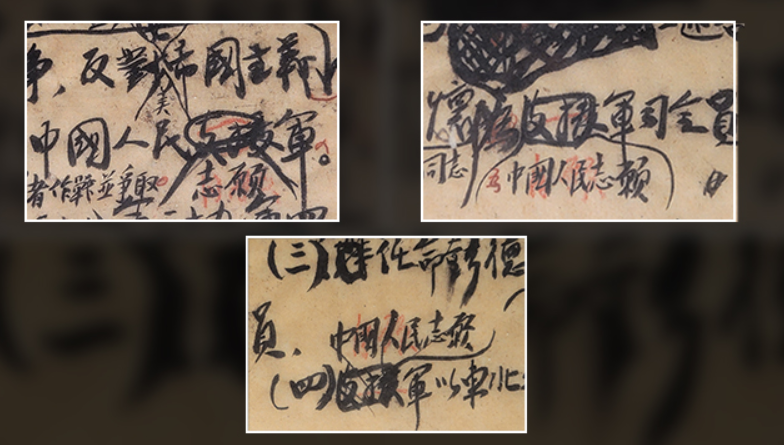 爭、反對帝國主義
美
中國人民支援軍。
者作戰並爭取 志願
懷為支援軍司令員
中國人民志願
(三)特任命彭德
員. 中國人民志願
(四)支援軍以東北